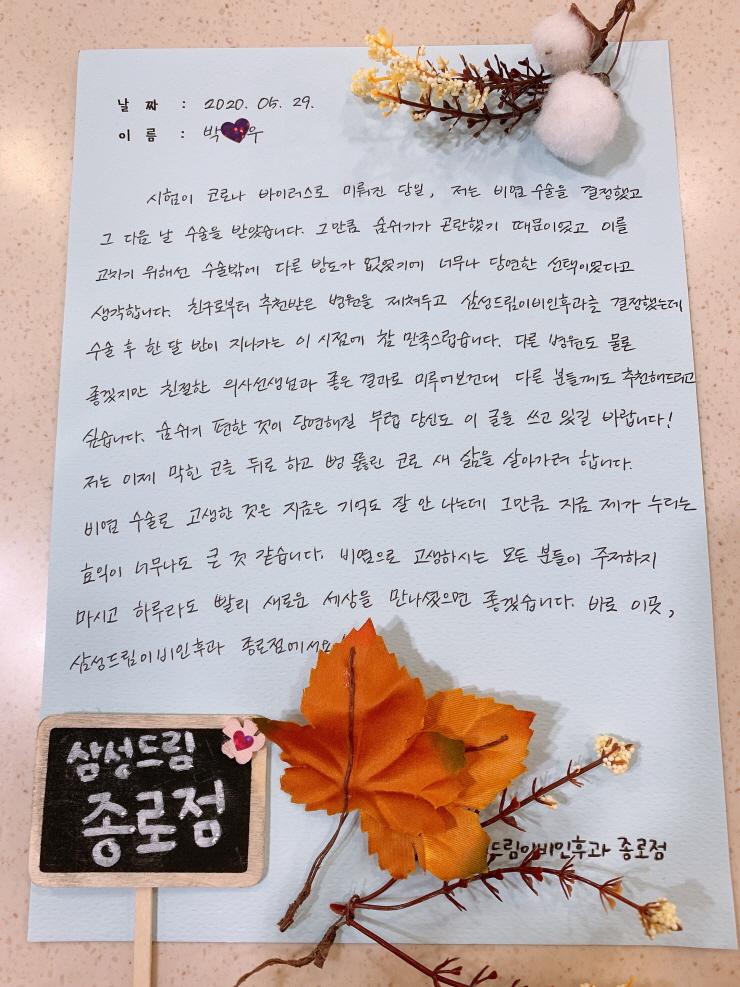 날 짜 : 2020. 05. 29.
이 름 : 박 우
시험이 코로나 바이러스로 미뤄진 당일, 저는 비염 수술을 결정했고
그 다음 날 수술을 받았습니다. 그만큼 숨쉬기가 곤란했기 때문이었고 이를
고치기 위해선 수술밖에 다른 방도가 없었기에 너무나 당연한 선택이었다고
생각합니다. 친구로부터 추천받은 병원을 제쳐두고 삼성드림이비인후과를 결정했는데
수술 후 한 달 반이 지나가는 이 시점에 참 만족스럽습니다. 다른 병원도 물론
좋겠지만 친절한 의사선생님과 좋은 결과로 미루어보건대 다른 분들께도 추천해드리고
싶습니다. 숨쉬기 편한 것이 당연해질 무렵 당신도 이 글을 쓰고 있길 바랍니다!
저는 이제 막힌 코를 뒤로 하고 뻥 뚫린 코로 새 삶을 살아가려 합니다.
비염 수술로 고생한 것은 지금은 기억도 잘 안 나는데 그만큼 지금 제가 누리는
효익이 너무나도 큰 것 같습니다. 비염으로 고생하시는 모든 분들이 주저하지
마시고 하루라도 빨리 새로운 세상을 만나셨으면 좋겠습니다. 바로 이곳,
삼성드림이비인후과 종로점에서요!
삼성드림
종로점
드림이비인후과 종로점